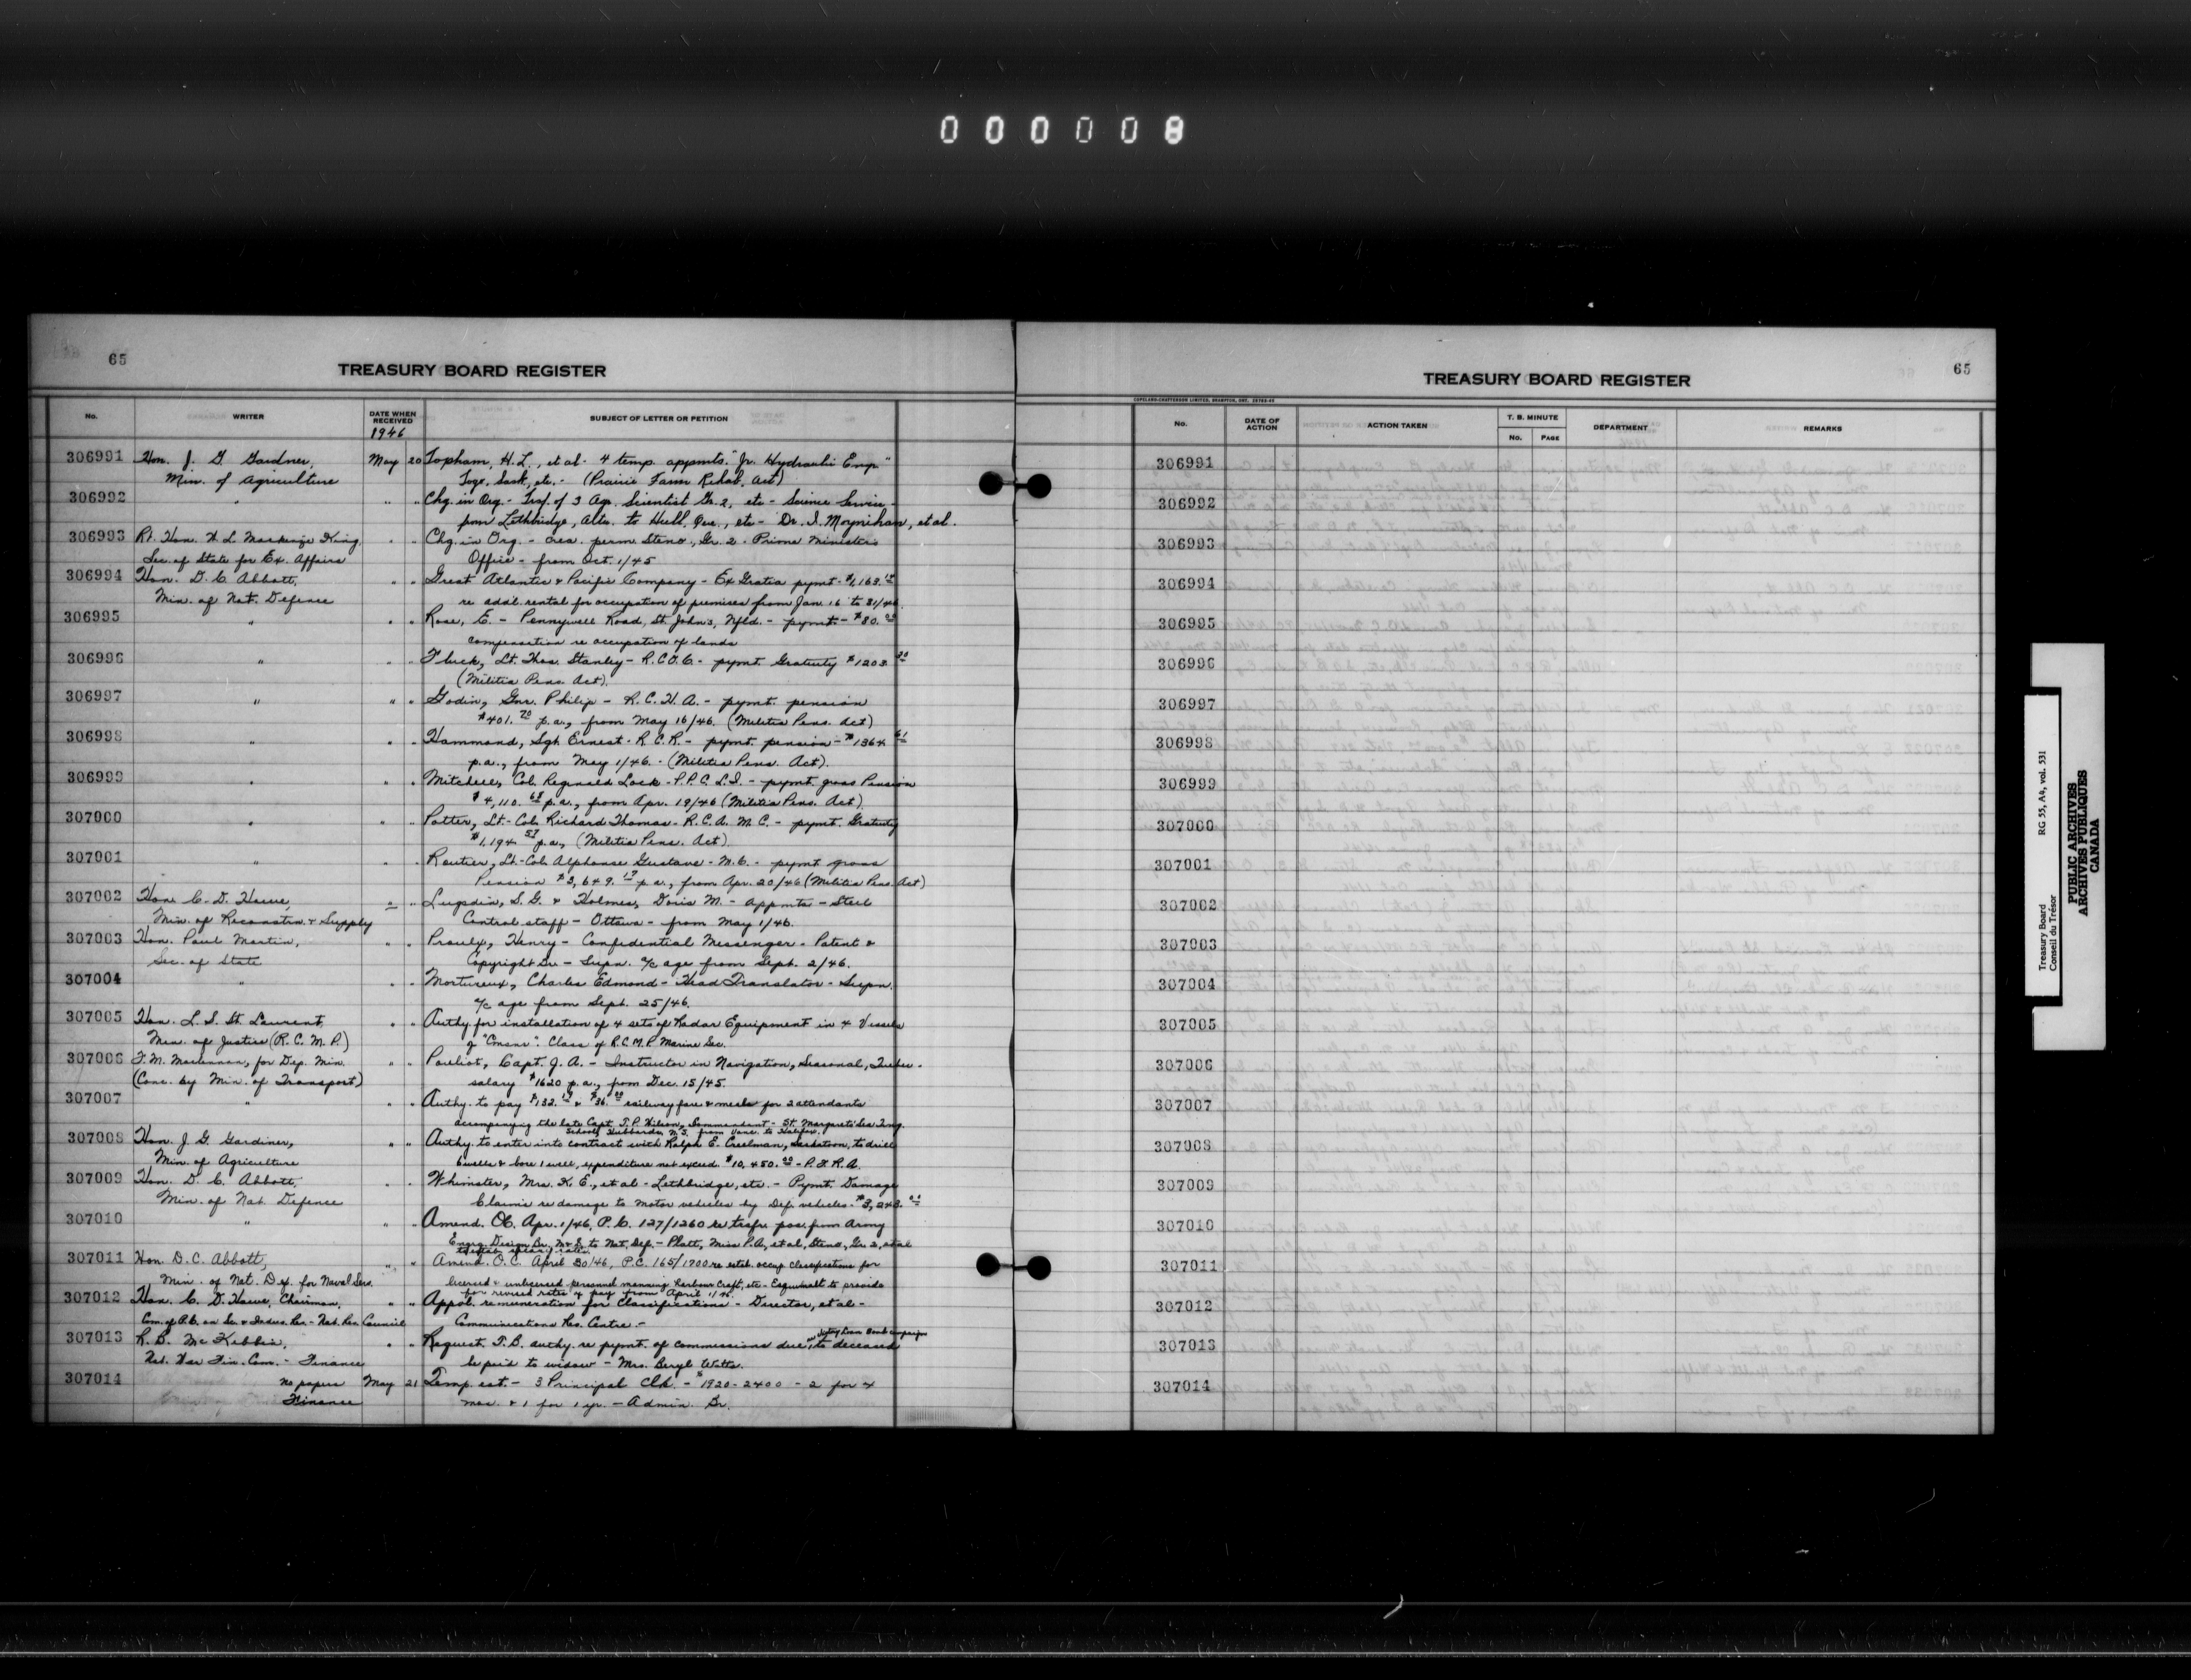 000008
65
TREASURY BOARD REGISTER
No. WRITER DATE WHEN RECEIVED SUBJECT OF LETTER OR PETITION
1946
306991 Hon. J. G. Gardner, May 20 Topham, H.L., et al - 4 temp. appmts. "Jr. Hydraulic Eng."
Min. of Agriculture Sask., etc. - (Prairie Farm Rehab. Act)
306992 " " " Chg. in Org. - Trsf. of 3 Agr. Scientist Gr. 2, etc - Science Service
from Lethbridge, Alta. to Hull, Que., etc - Dr. I. Moynihan, et al.
306993 Rt. Hon. W. L. Mackenzie King " " Chg. in Org. - crea. perm. Steno., Gr. 2 - Prime Minister's
Sec. of State for Ex. Affairs Office - from Oct. 1/45
306994 Hon. D. C. Abbott, " " Great Atlantic & Pacific Company - Ex Gratia pymt - $1,163.
Min. of Nat. Defence re addl. rental for occupation of premises from Jan. 16 to 31/46.
306995 " " " Rose, E. - Pennywell Road, St. John's, Nfld. - pymt - $80.
compensation re occupation of lands
306996 " " " Fluck, Lt. Thos. Stanley - R.C.O.C. - pymt. Gratuity $1203.
(Militia Pens. Act).
306997 " " " Godin, Gnr. Philip - R.C.H.A. - pymt. pension
$401.70 p.a., from May 16/46. (Militia Pens. Act)
306998 " " " Hammond, Sgt. Ernest - R.C.R. - pymt. pension - $1364
p.a., from May 1/46. - (Militia Pens. Act).
306999 " " " Mitchell, Col. Reginald Lock - P.P.C.L.I. - pymt. gross Pension
$4,110.68 p.a., from Apr. 19/46 (Militia Pens. Act).
307000 " " " Potter, Lt-Col. Richard Thomas - R.C.A.M.C. - pymt. Gratuity
$1,194.57 p.a., (Militia Pens. Act).
307001 " " " Routier, Lt-Col. Alphonse Gustave - M.C. - pymt gross
Pension $3,649.19 p.a., from Apr. 20/46 (Militia Pens. Act)
307002 Hon. C. D. Howe, " " Lugsdin, S. G. & Holmes, Doris M. - appmts - Steel
Min. of Reconstn. & Supply Control staff - Ottawa - from May 1/46.
307003 Hon. Paul Martin, " " Proulx, Henry - Confidential Messenger - Patent &
Sec. of State Copyright Br. - Supn. a/c age from Sept. 2/46.
307004 " " " Mortureux, Charles Edmond - Head Translator - Supn.
a/c age from Sept. 25/46.
307005 Hon. L. S. St. Laurent, " " Authy. for installation of 4 sets of Radar Equipment in 4 Vessels
Min. of Justice (R.C.M.P.) of Class of R.C.M.P. Marine Sec.
307006 F. M. Maclennan, for Dep. Min. " " Pouliot, Capt. J. A. - Instructor in Navigation, Seasonal, Quebec -
(Conc. by Min. of Transport) salary $1620 p.a., from Dec. 15/45.
307007 " " " Authy. to pay $132. & $36. railway fare & meals for 2 attendants
accompanying the late Capt. T. P. Wilson, Commandant - St. Margaret's Sea Trng.
School, Hubbards, N.S. from Vanc. to Halifax.
307008 Hon. J. G. Gardiner, " " Authy. to enter into contract with Ralph E. Creelman, Saskatoon, to drill
Min. of Agriculture 6 wells & bore 1 well, expenditure not exceed. $10,450.00 - P.F.R.A.
307009 Hon. D. C. Abbott, " " Whimster, Mrs. K. E., et al - Lethbridge, etc. - Pymt. Damage
Min. of Nat. Defence Claims re damage to motor vehicles by Def. vehicles - $3,243.
307010 " " " Amend. O.C. Apr. 1/46, P.C. 127/1260 re trsfr. pos. from Army
Engrg. Design Br., M&S. to Nat. Def. - Platt, Miss P.A., et al, Steno., Gr. 2, et al
307011 Hon. D. C. Abbott, " " Amend. O.C. April 30/46, P.C. 165/1700 re estab. occup. classifications for
Min. of Nat. Def. for Naval Serv. licensed & unlicensed personnel manning Harbour Craft, etc - Esquimalt to provide
for revised rates of pay from April 1/46.
307012 Hon. C. D. Howe, Chairman, " " Appvl. remuneration for Classifications - Director, et al -
Com. of P.C. on Sc. & Indus. Res. - Nat. Res. Council Communications Res. Centre. -
307013 R. B. McKibbin, " " Request. T.B. authy. re pymt. of commissions due, on Victory Loan Bond campaign to deceased
Nat. War Fin. Com. - Finance be paid to widow - Mrs. Beryl Watts.
307014 No papers May 21 Temp. est. - 3 Principal Clk. - $1920-2400 - 2 for 4
Finance mos. & 1 for 1 yr. - Admin. Br.
65
TREASURY BOARD REGISTER
COPELAND-CHATTERSON LIMITED, BRAMPTON, ONT.
No. DATE OF ACTION ACTION TAKEN T. B. MINUTE No. PAGE DEPARTMENT REMARKS
306991
306992
306993
306994
306995
306996
306997
306998
306999
307000
307001
307002
307003
307004
307005
307006
307007
307008
307009
307010
307011
307012
307013
307014
Treasury Board RG 55, A4, vol. 531
Conseil du Trésor
PUBLIC ARCHIVES
ARCHIVES PUBLIQUES
CANADA